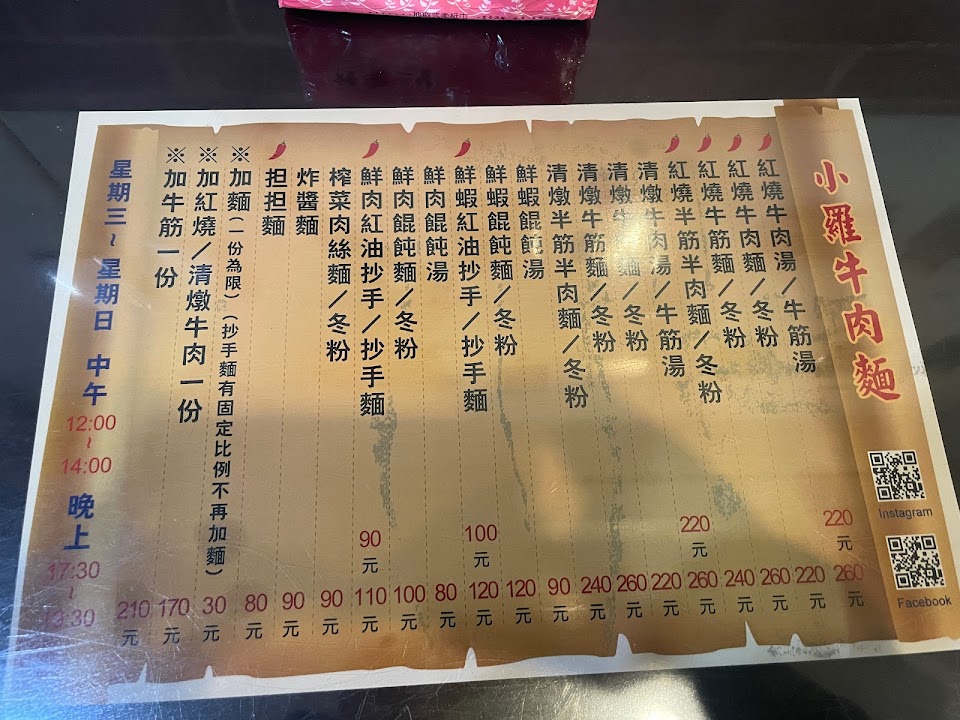 小羅牛肉麵
Instagram
Facebook
紅燒牛肉湯／牛筋湯 220元 260元
紅燒牛肉麵／冬粉 220元
紅燒牛筋麵／冬粉 260元
紅燒半筋半肉麵／冬粉 240元
清燉牛肉湯／牛筋湯 220元 260元
清燉牛肉麵／冬粉 220元
清燉牛筋麵／冬粉 260元
清燉半筋半肉麵／冬粉 240元
鮮蝦餛飩湯 90元
鮮蝦餛飩麵／冬粉 120元
鮮蝦紅油抄手／抄手麵 100元 120元
鮮肉餛飩湯 80元
鮮肉餛飩麵／冬粉 100元
鮮肉紅油抄手／抄手麵 90元 110元
榨菜肉絲麵／冬粉 90元
炸醬麵 90元
担担麵 80元
※加麵(一份為限)(抄手麵有固定比例不再加麵) 30元
※加紅燒／清燉牛肉一份 170元
※加牛筋一份 210元
星期三~星期日 中午 12:00~14:00 晚上 17:30~19:30